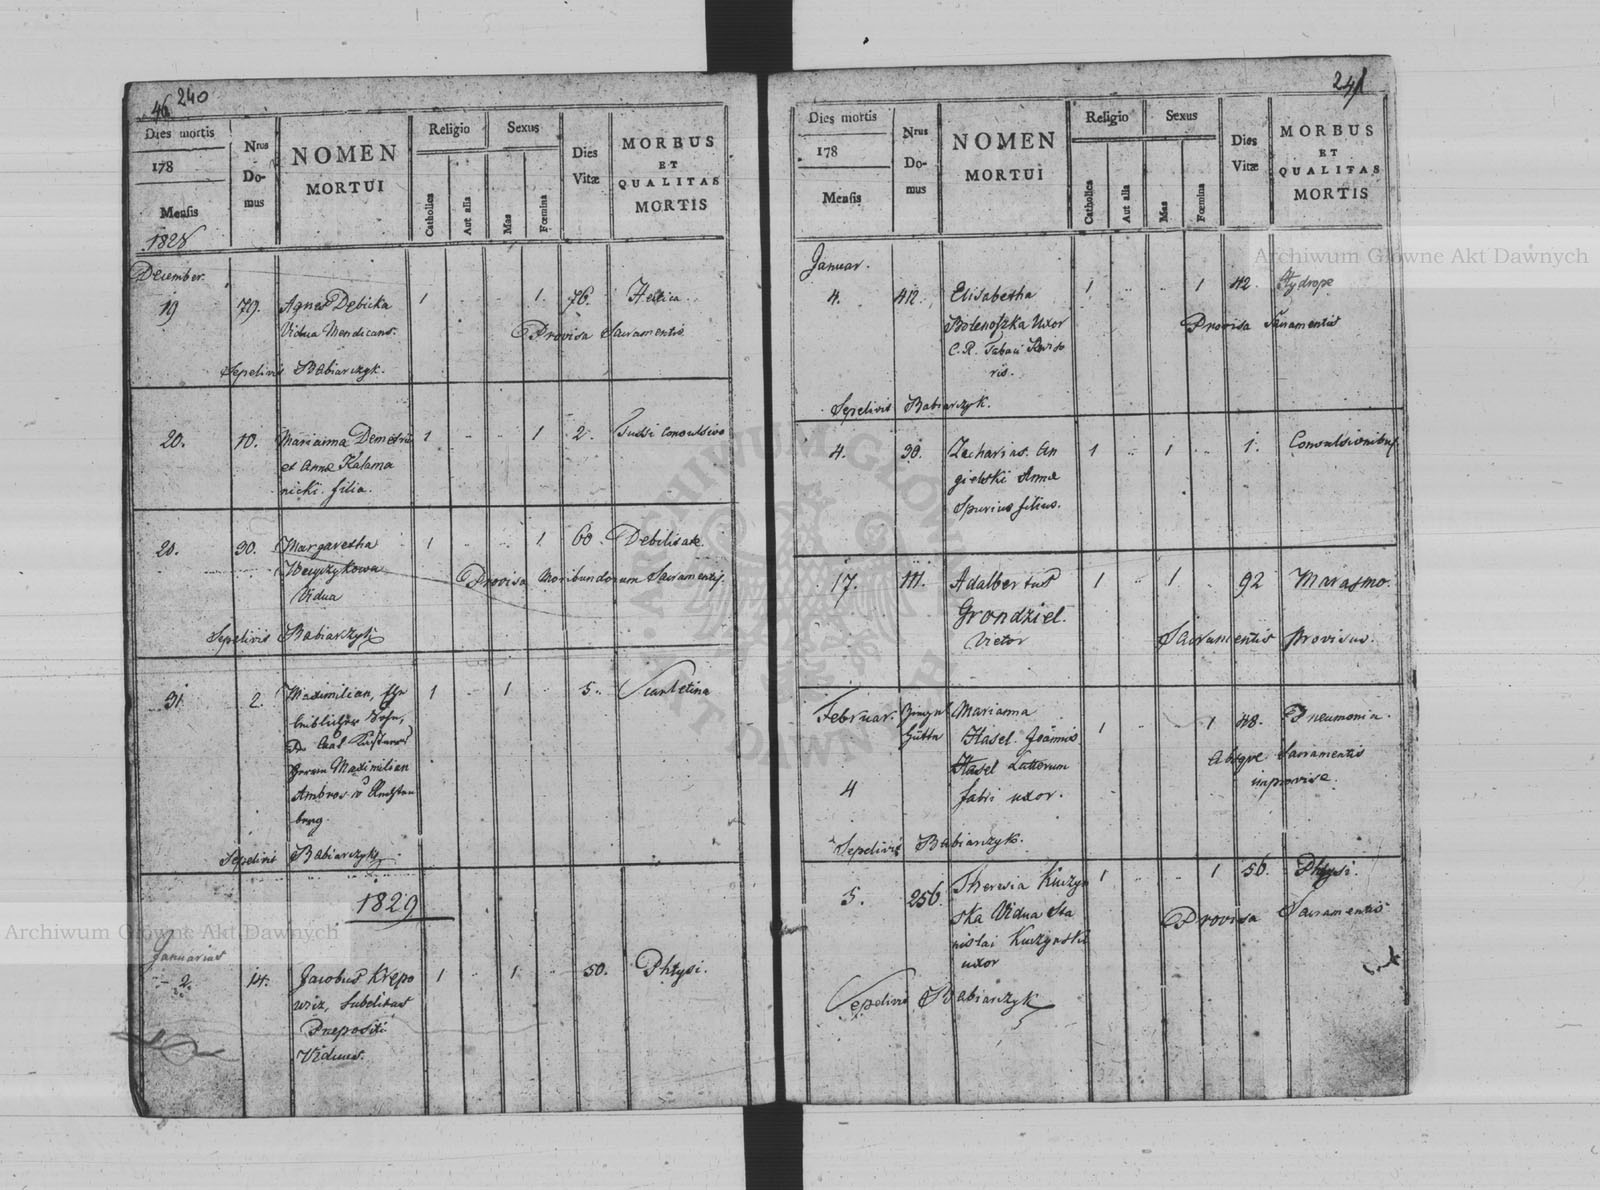 46 240
Dies mortis
178
Mensis
Nrus
Do-
mus
NOMEN
MORTUI
Religio
Catholica
Aut alia
Sexus
Mas
Fœmina
Dies
Vitæ
MORBUS
ET
QUALITAS
MORTIS
1828
December.
19 79. Agnes Dębicka 1 .. .. 1. 76. Hectica
Vidua Mendicans. Provisa Sacramentis
Sepelivit Babiarczyk.
20. 10. Marianna Demetrii 1 .. .. 1 2. Tussi convulsiva
et Anna Kalama
nicki filia.
30. Margaretha 1 .. .. 1. 60. Debilitate
Vidua Provisa Moribundorum Sacramentis
Sepelivit Babiarczyk
31 2. Maximilian, 1 .. 1 .. 5. Scarletina
leiblicher Sohn,
Herrn Maximilian
Ambros v
berg.
Sepelivit Babiarczyk
1829
Januarius
2. 14. Jacobus Krepo 1 .. 1 .. 50. Phtysi.
wiz, Subditus
Præpositi
Viduus.
241
Dies mortis
178
Mensis
Nrus
Do-
mus
NOMEN
MORTUI
Religio
Catholica
Aut alia
Sexus
Mas
Fœmina
Dies
Vitæ
MORBUS
ET
QUALITAS
MORTIS
Januar.
4. 412. Elisabetha 1 .. .. 1 42. Hydrope
Uxor Provisa Sacramentis
C. R. Tabaci Reviso
ris.
Sepelivit Babiarczyk.
4. 30. Zacharias An 1 .. 1 .. 1. Convulsionibus
gielski Annæ
Spurius filius.
17. 111. Adalbertus 1 .. 1 .. 92 Marasmo.
Grondziel.
Victor Sacramentis Provisus.
Februar. Marianna 1 .. .. 1 48. Pneumonia.
Hütte Hasel. Joannis Absque Sacramentis
4 Hasel Lutterum improvise.
fabri uxor.
Sepelivit Babiarczyk.
5. 256. Theresia Kuczyn 1 .. .. 1 56. Phtysi.
ska Vidua Sta Provisa Sacramentis
nislai Kuczynski
uxor
Sepelivit Babiarczyk
Archiwum Główne Akt Dawnych
Archiwum Główne Akt Dawnych
ARCHIWUM GŁÓWNE
AKT DAWNYCH